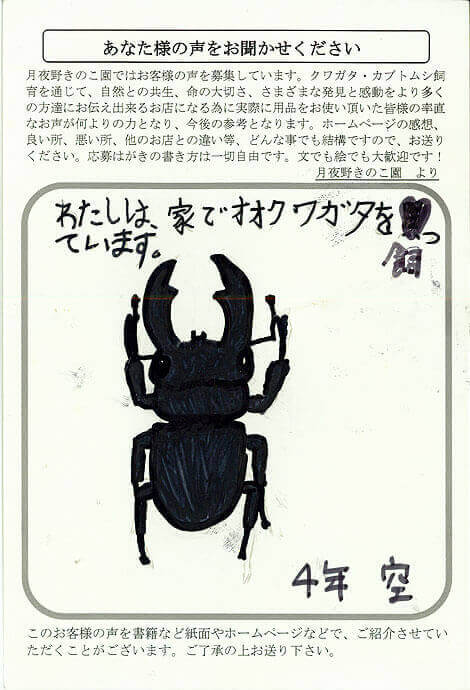 あなた様の声をお聞かせください
月夜野きのこ園ではお客様の声を募集しています。クワガタ・カブトムシ飼
育を通じて、自然との共生、命の大切さ、さまざまな発見と感動をより多く
の方達にお伝え出来るお店になる為に実際に用品をお使い頂いた皆様の率直
なお声が何よりの力となり、今後の参考となります。ホームページの感想、
良い所、悪い所、他のお店との違い等、どんな事でも結構ですので、お送り
ください。応募はがきの書き方は一切自由です。文でも絵でも大歓迎です！
月夜野きのこ園　より
わたしは、家でオオクワガタを飼っ
ています。
4年　空
このお客様の声を書籍など紙面やホームページなどで、ご紹介させてい
ただくことがございます。ご了承の上お送り下さい。